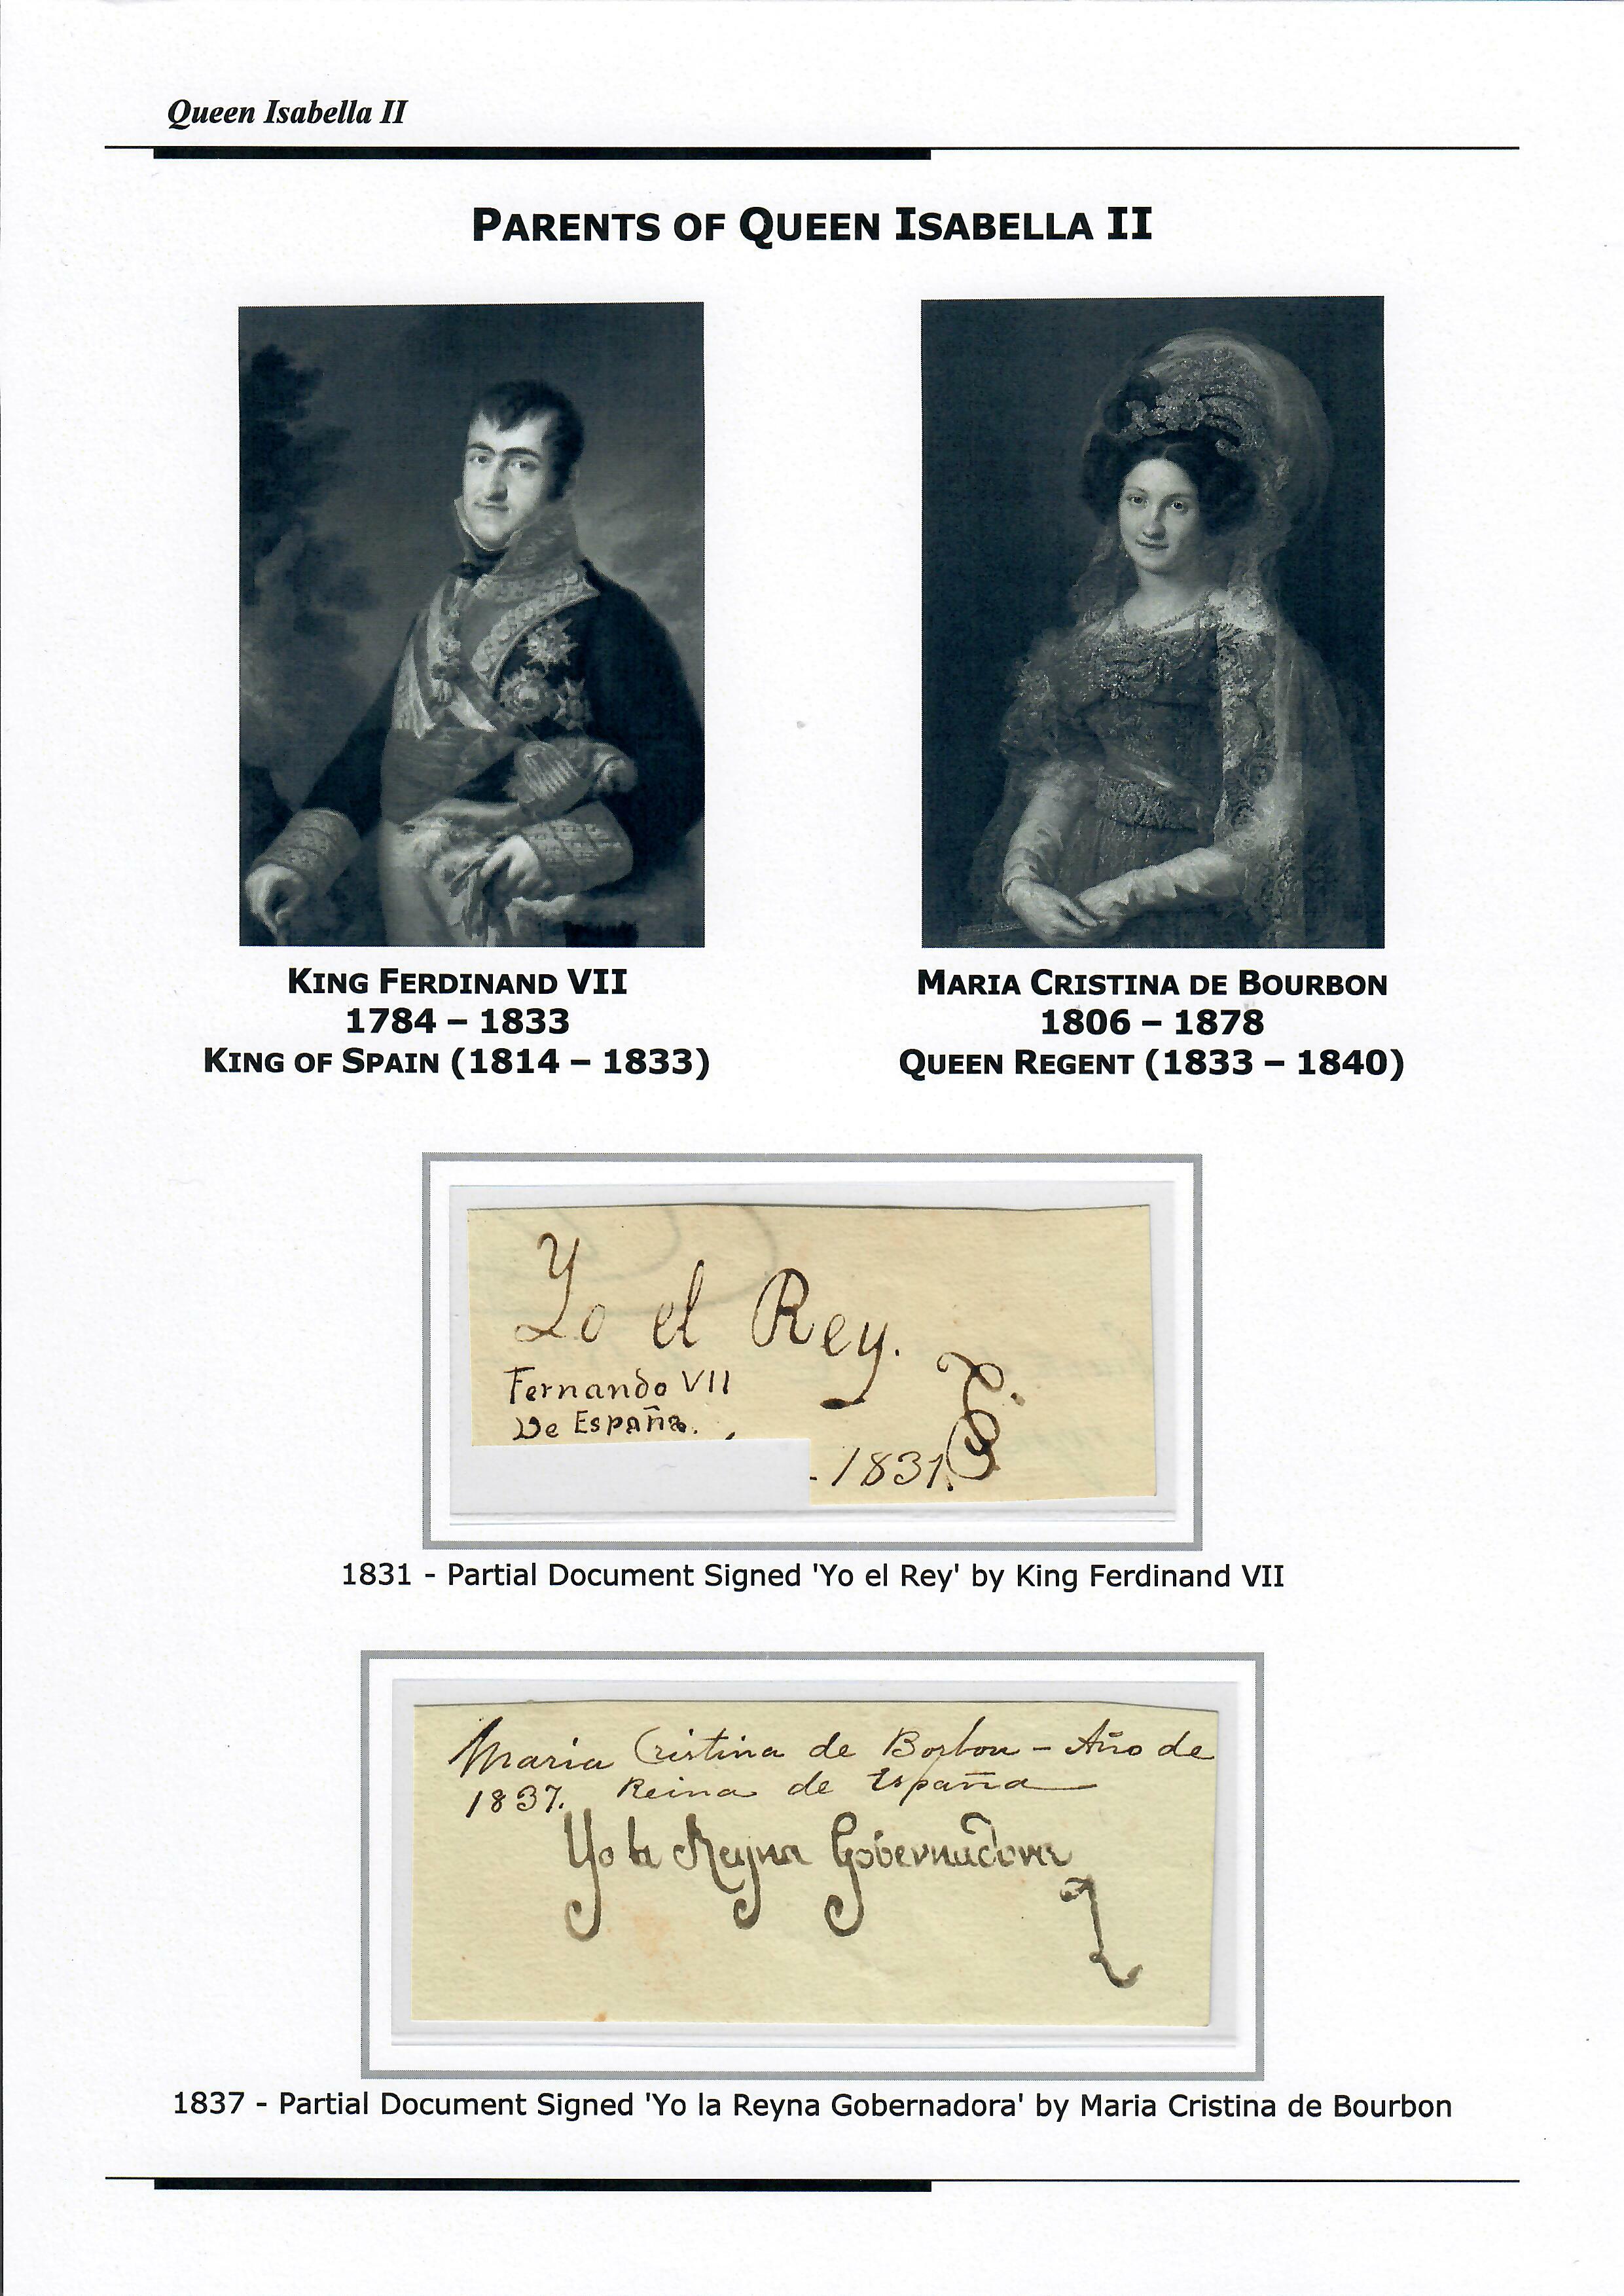 Queen Isabella II
PARENTS OF QUEEN ISABELLA II
KING FERDINAND VII
1784 – 1833
KING OF SPAIN (1814 – 1833)
MARIA CRISTINA DE BOURBON
1806 – 1878
QUEEN REGENT (1833 – 1840)
Yo el Rey.
Fernando VII
De España.
- 1831.
1831 - Partial Document Signed 'Yo el Rey' by King Ferdinand VII
Maria Cristina de Borbon – Año de
1837. Reina de España
Yo la Reyna Gobernadora
1837 - Partial Document Signed 'Yo la Reyna Gobernadora' by Maria Cristina de Bourbon